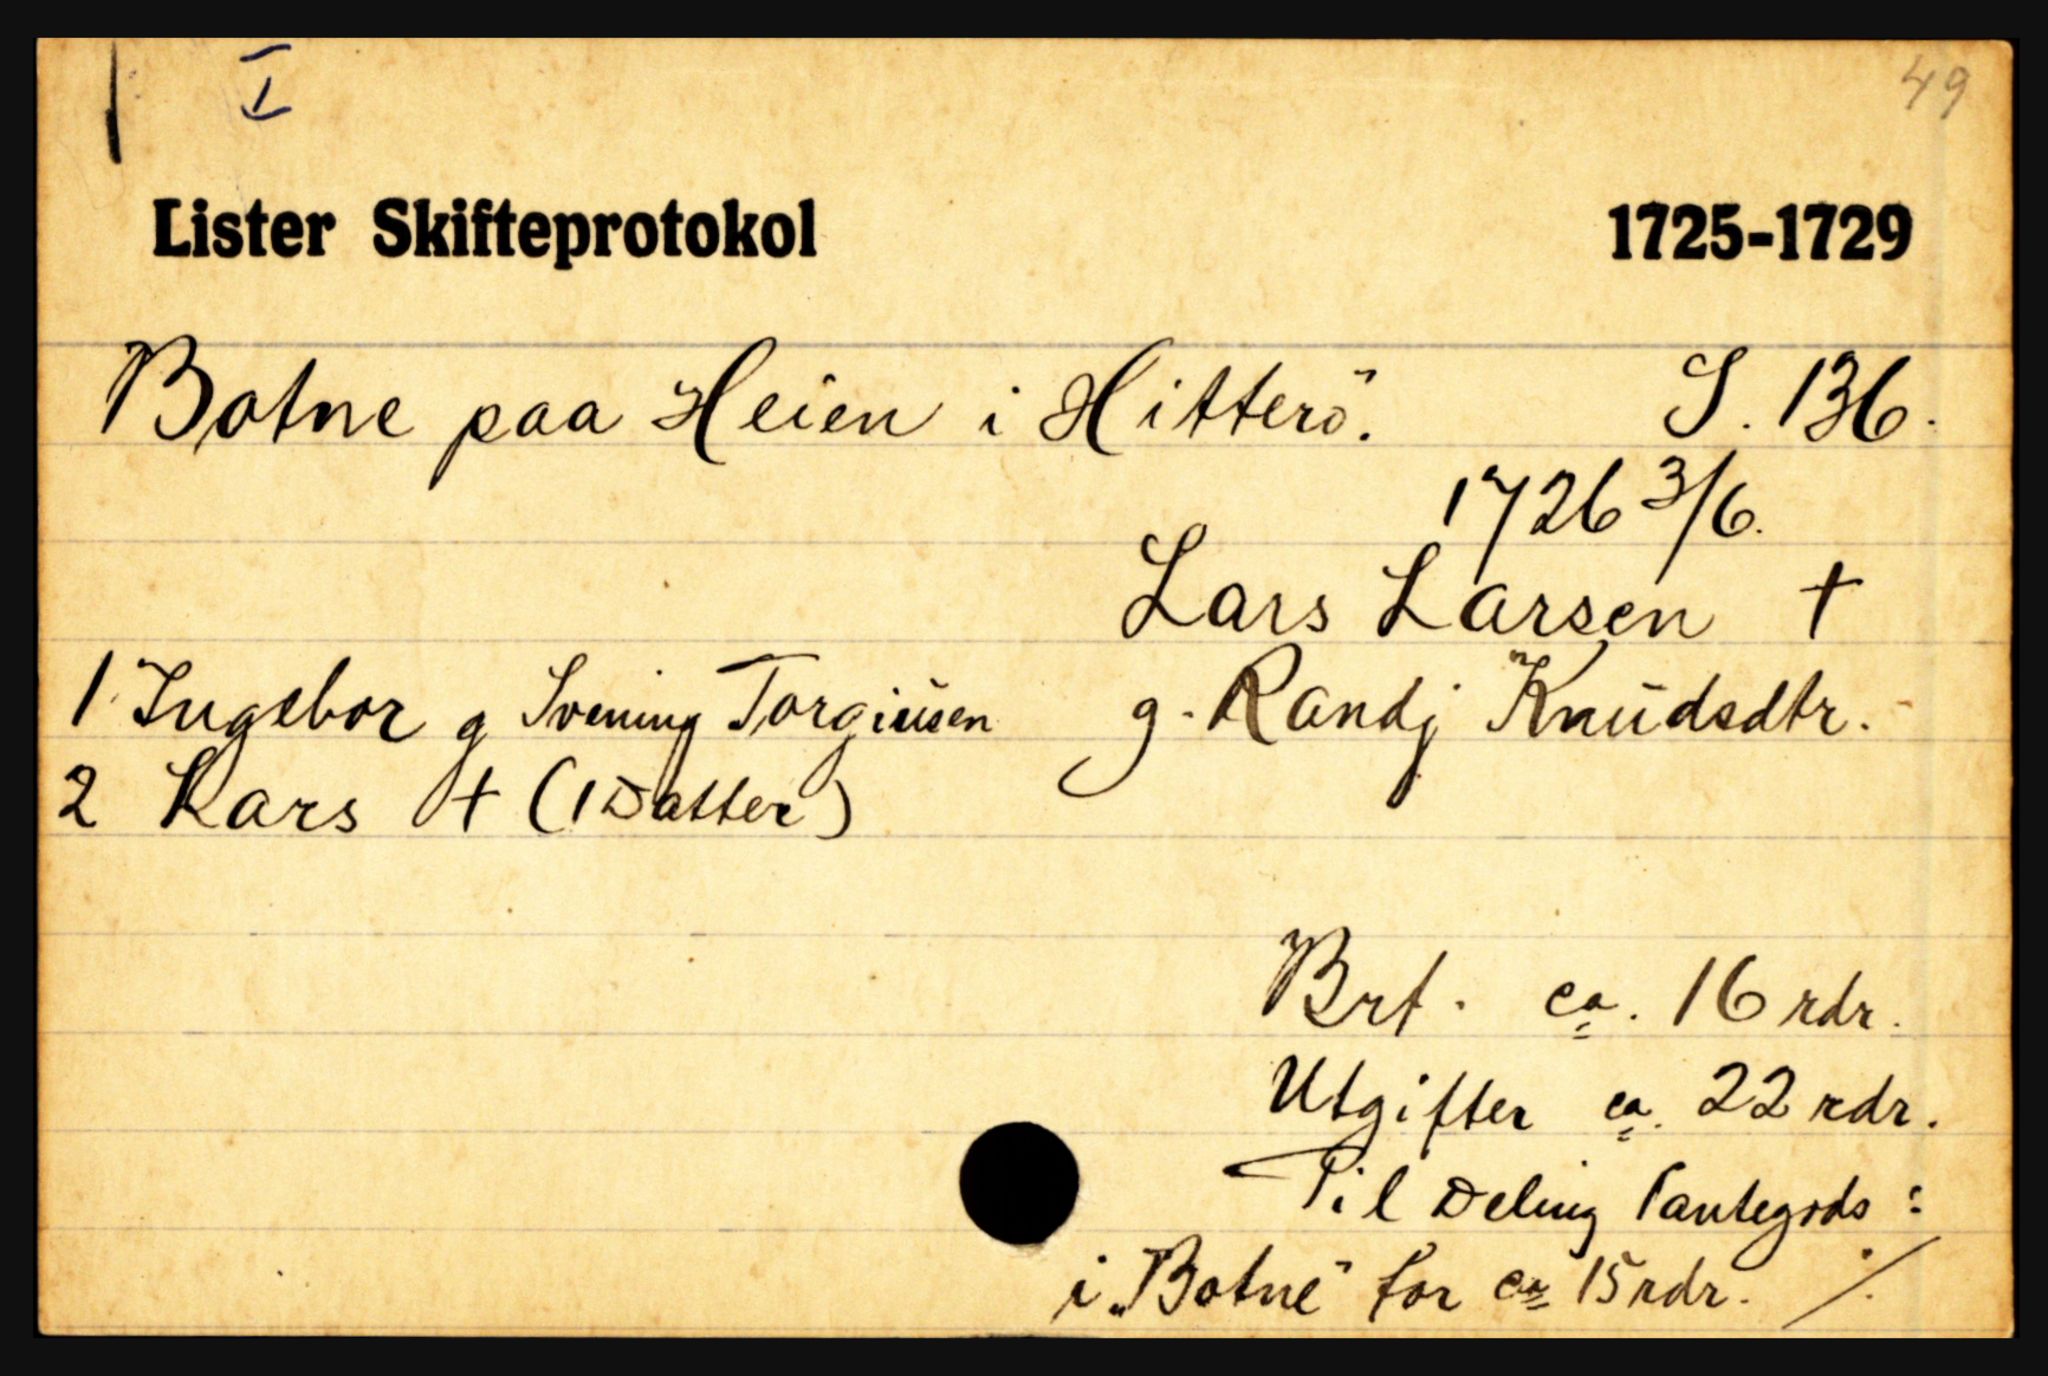 I 49
Lister Skifteprotokol 1725-1729
Botne paa Heien i Hitterö. S. 136.
1726 3/6.
Lars Larsen †
1 Ingebor g Svening Torgiüsen g. Randj Knüdsdtr.
2 Lars † (1 Datter)
Brt. ca. 16 rdr.
Utgifter ca. 22 rdr.
Til Deling Pantegods :
i "Botne" for ca 15 rdr. ./.